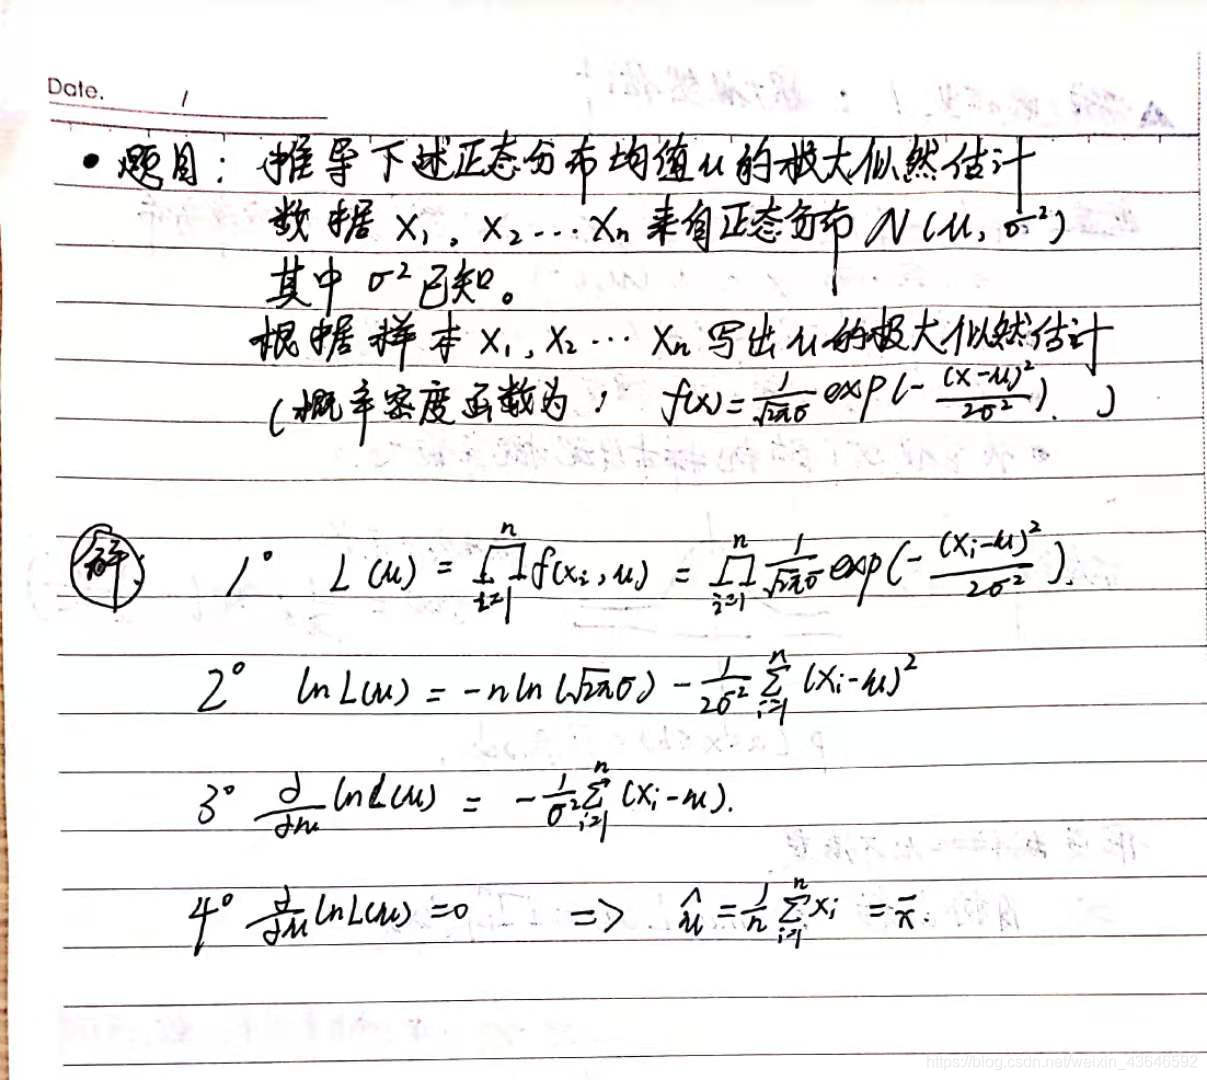 Date. /
• 题目: 推导下述正态分布均值μ的极大似然估计
数据 x₁, x₂ ⋯ xₙ 来自正态分布 N(μ, σ²)
其中 σ² 已知。
根据样本 x₁, x₂ ⋯ xₙ 写出 μ 的极大似然估计
(概率密度函数为: f(x) = 1/(√2πσ) exp(-(x-μ)²/2σ²). )
解: 1° L(μ) = ∏ᵢ₌₁ⁿ f(xᵢ, μ) = ∏ᵢ₌₁ⁿ 1/(√2πσ) exp(-(xᵢ-μ)²/2σ²).
2° ln L(μ) = -n ln(√2πσ) - 1/2σ² ∑ᵢ₌₁ⁿ (xᵢ-μ)²
3° ∂/∂μ ln L(μ) = -1/σ² ∑ᵢ₌₁ⁿ (xᵢ-μ).
4° ∂/∂μ ln L(μ) = 0 => μ̂ = 1/n ∑ᵢ₌₁ⁿ xᵢ = x̄.
https://blog.csdn.net/weixin_43646592